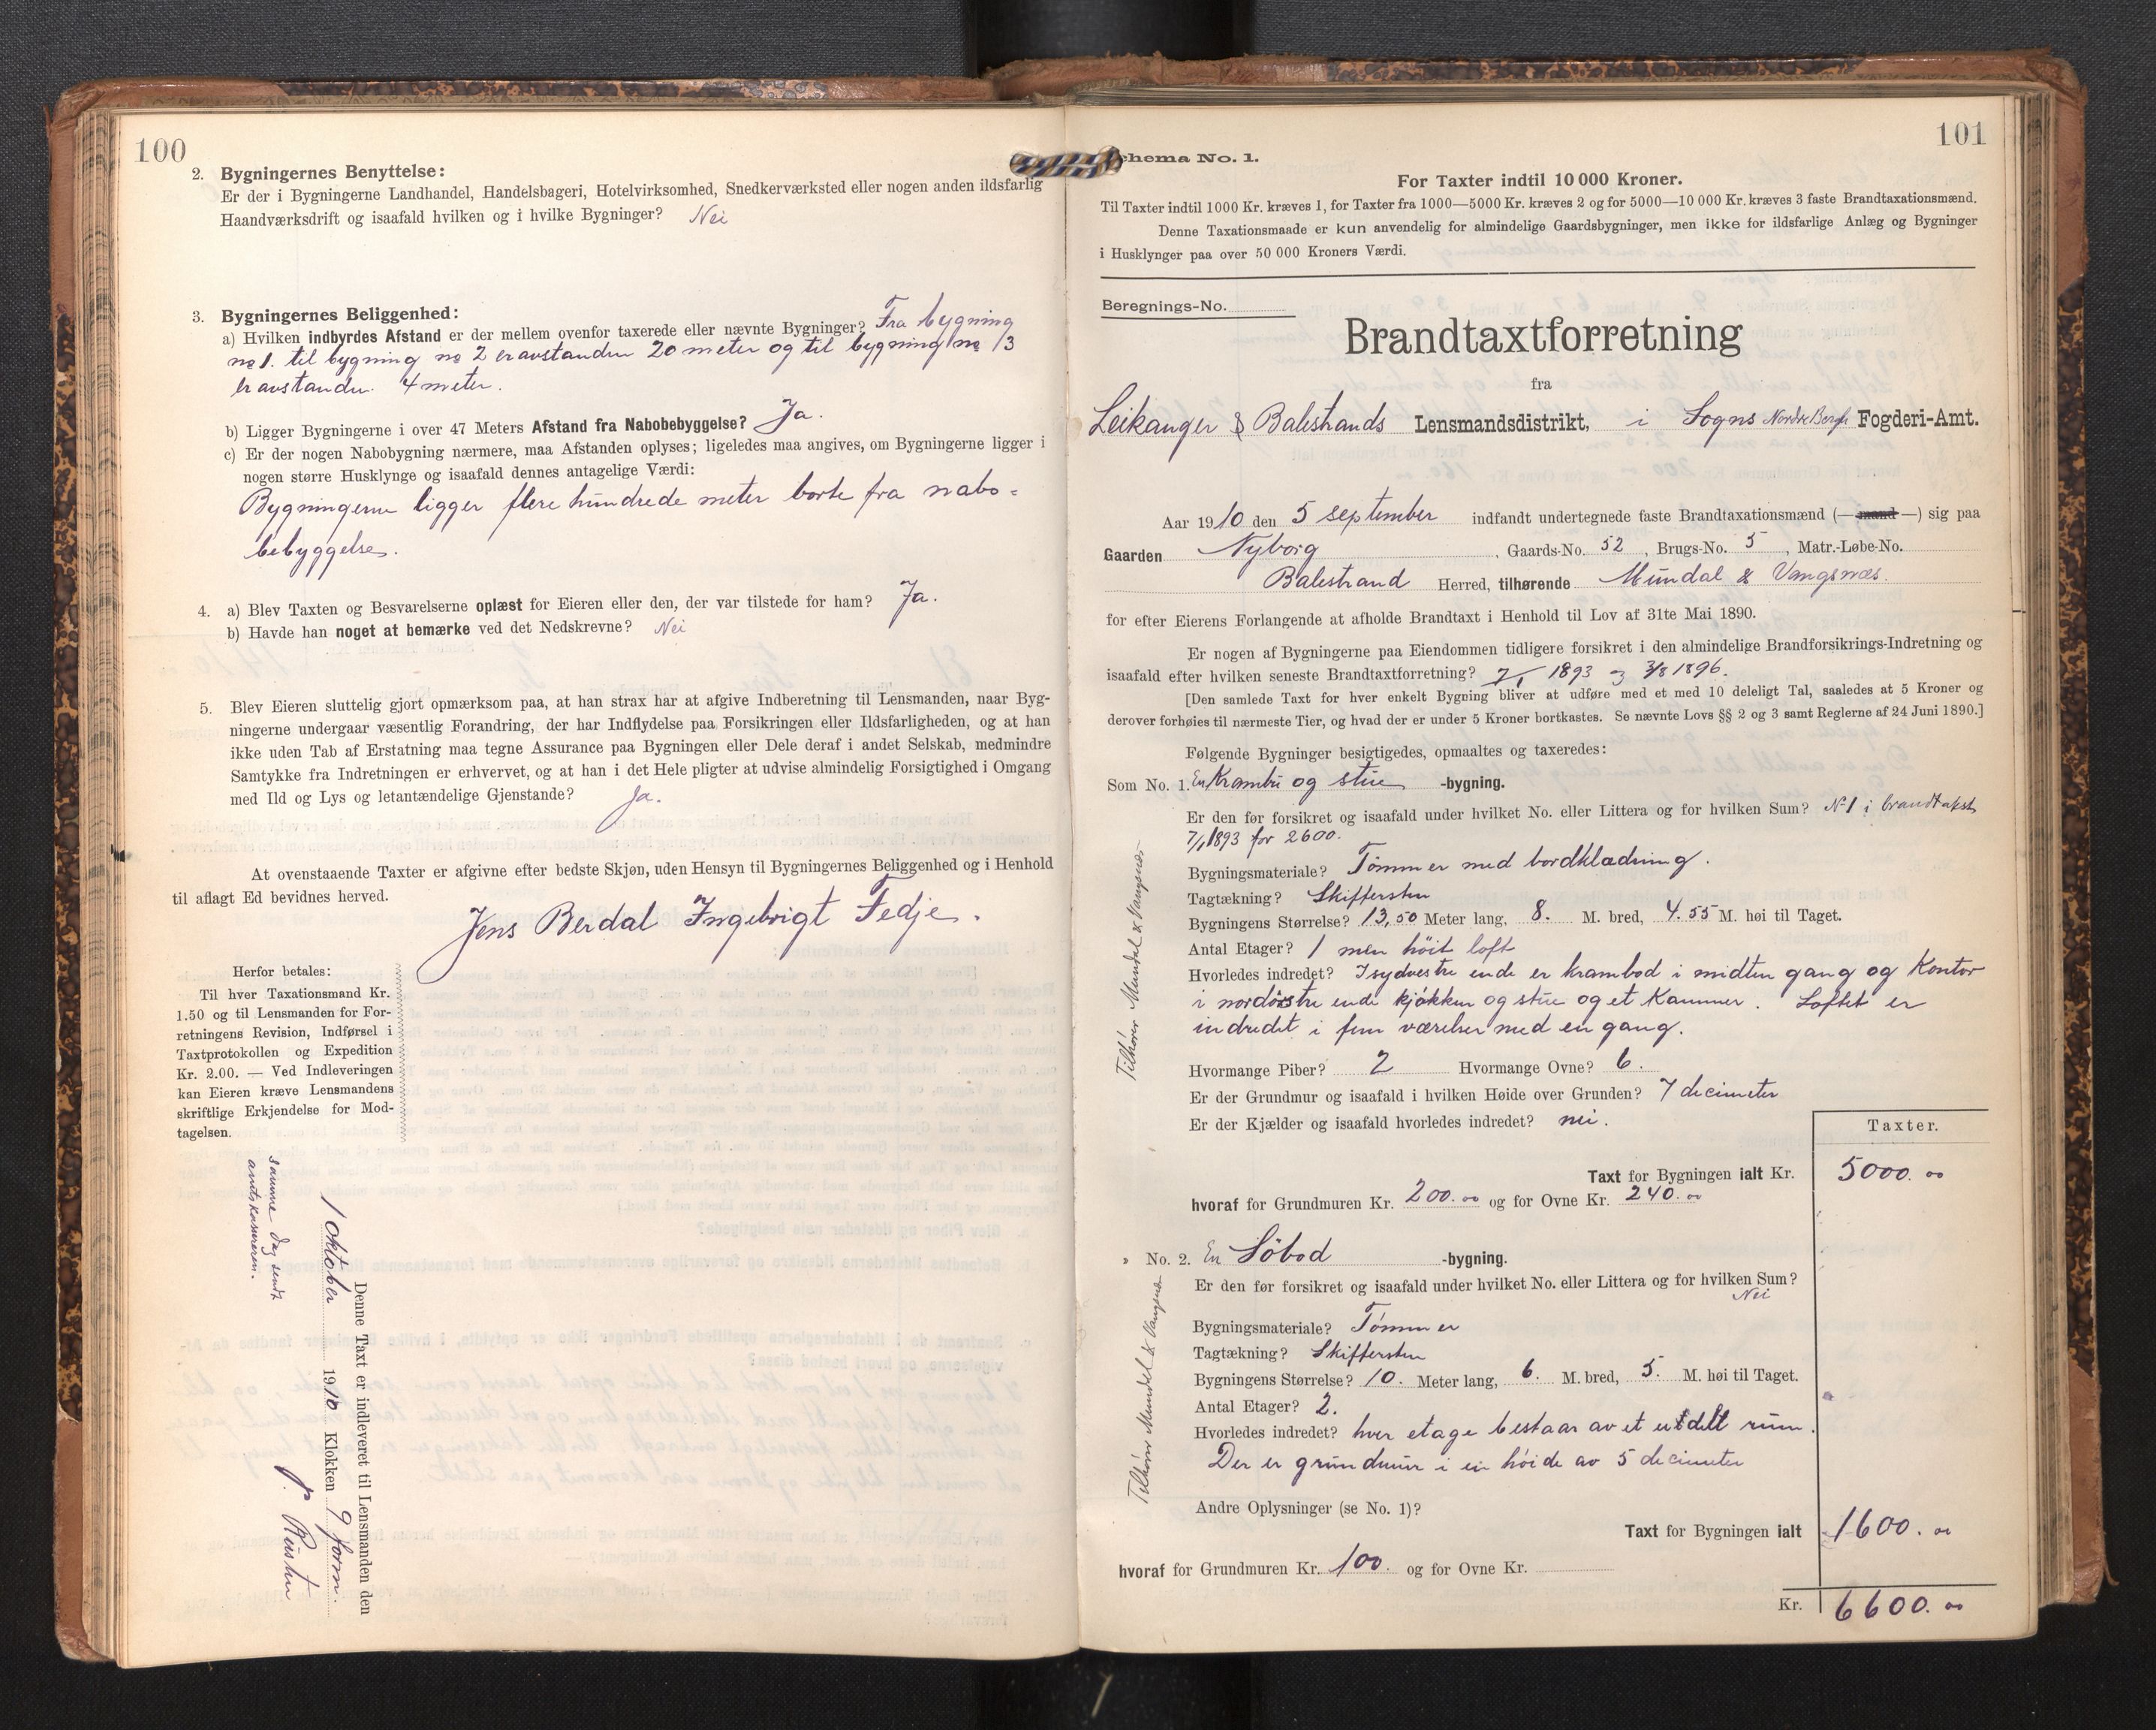 100
2. Bygningernes Benyttelse:
Er der i Bygningerne Landhandel, Handelsbageri, Hotelvirksomhed, Snedkerværksted eller nogen anden ildsfarlig
Haandværksdrift og isaafald hvilken og i hvilke Bygninger? Nei
3. Bygningernes Beliggenhed:
a) Hvilken indbyrdes Afstand er der mellem ovenfor taxerede eller nævnte Bygninger? Fra bygning
no 1. til bygning no 2 er avstanden 20 meter og til bygning no 3
er avstanden 4 meter.
b) Ligger Bygningerne i over 47 Meters Afstand fra Nabobebyggelse? Ja.
c) Er der nogen Nabobygning nærmere, maa Afstanden oplyses; ligeledes maa angives, om Bygningerne ligger i
nogen større Husklynge og isaafald dennes antagelige Værdi:
Bygningerne ligger flere hundrede meter borte fra nabo=
bebyggelse.
4. a) Blev Taxten og Besvarelserne oplæst for Eieren eller den, der var tilstede for ham? Ja.
b) Havde han noget at bemærke ved det Nedskrevne? Nei
5. Blev Eieren sluttelig gjort opmærksom paa, at han strax har at afgive Indberetning til Lensmanden, naar Byg-
ningerne undergaar væsentlig Forandring, der har Indflydelse paa Forsikringen eller Ildsfarligheden, og at han
ikke uden Tab af Erstatning maa tegne Assurance paa Bygningen eller Dele deraf i andet Selskab, medmindre
Samtykke fra Indretningen er erhvervet, og at han i det Hele pligter at udvise almindelig Forsigtighed i Omgang
med Ild og Lys og letantændelige Gjenstande? Ja.
At ovenstaaende Taxter er afgivne efter bedste Skjøn, uden Hensyn til Bygningernes Beliggenhed og i Henhold
til aflagt Ed bevidnes herved.
Jens Berdal Ingebrigt Fedje.
Herfor betales:
Til hver Taxationsmand Kr.
1.50 og til Lensmanden for For-
retningens Revision, Indførsel i
Taxtprotokollen og Expedition
Kr. 2.00. — Ved Indleveringen
kan Eieren kræve Lensmandens
skriftlige Erkjendelse for Mod-
tagelsen.
Denne Taxt er indleveret til Lensmanden den
1 oktober 1910 Klokken 9 form.
samme dag sendt
amtskassereren.
101
Schema No. 1.
For Taxter indtil 10 000 Kroner.
Til Taxter indtil 1000 Kr. kræves 1, for Taxter fra 1000—5000 Kr. kræves 2 og for 5000—10 000 Kr. kræves 3 faste Brandtaxationsmænd.
Denne Taxationsmaade er kun anvendelig for almindelige Gaardsbygninger, men ikke for ildsfarlige Anlæg og Bygninger
i Husklynger paa over 50 000 Kroners Værdi.
Beregnings-No.
Brandtaxtforretning
fra
Leikanger & Balestrands Lensmandsdistrikt, i Sogns Nordre Bergh Fogderi-Amt.
Aar 1910 den 5 september indfandt undertegnede faste Brandtaxationsmænd (— mand —) sig paa
Gaarden Nyborg, Gaards-No. 52, Brugs-No. 5, Matr.-Løbe-No.
Balestrand Herred, tilhørende Mundal & Vangsnæs.
for efter Eierens Forlangende at afholde Brandtaxt i Henhold til Lov af 31te Mai 1890.
Er nogen af Bygningerne paa Eiendommen tidligere forsikret i den almindelige Brandforsikrings-Indretning og
isaafald efter hvilken seneste Brandtaxtforretning? 7/1 1893 og 3/8 1896.
[Den samlede Taxt for hver enkelt Bygning bliver at udføre med et med 10 deleligt Tal, saaledes at 5 Kroner og
derover forhøies til nærmeste Tier, og hvad der er under 5 Kroner bortkastes. Se nævnte Lovs §§ 2 og 3 samt Reglerne af 24 Juni 1890.]
Følgende Bygninger besigtigedes, opmaaltes og taxeredes:
Som No. 1. En Krambu og stue -bygning.
Er den før forsikret og isaafald under hvilket No. eller Littera og for hvilken Sum? No 1 i brandtakst
7/1 1893 for 2600.
Bygningsmateriale? Tømmer med bordklædning.
Tagtækning? Skiffersten
Bygningens Størrelse? 13,50 Meter lang, 8. M. bred, 4.55 M. høi til Taget.
Antal Etager? 1 men høit loft
Hvorledes indredet? I sydvestre ende er krambod i midten gang og Kontor
i nordøstre ende kjøkken og stue og et Kammer. Loftet er
indredet i fem værelser med en gang.
Hvormange Piber? 2 Hvormange Ovne? 6.
Er der Grundmur og isaafald i hvilken Høide over Grunden? 7 decimeter
Er der Kjælder og isaafald hvorledes indredet? nei.
Taxter.
Taxt for Bygningen ialt Kr. 5000.00
hvoraf for Grundmuren Kr. 200.00 og for Ovne Kr. 240.00
Tilhører Mundal & Vangsnæs
" No. 2. En Søbod -bygning.
Er den før forsikret og isaafald under hvilket No. eller Littera og for hvilken Sum?
Nei
Bygningsmateriale? Tømmer
Tagtækning? Skiffersten
Bygningens Størrelse? 10. Meter lang, 6. M. bred, 5. M. høi til Taget.
Antal Etager? 2.
Hvorledes indredet? hver etage bestaar av et udelt rum.
Der er grundmur i en høide av 5 decimeter
Andre Oplysninger (se No. 1)?
Taxt for Bygningen ialt 1600.00
hvoraf for Grundmuren Kr. 100. og for Ovne Kr.
Kr. 6600.00
Tilhører Mundal & Vangsnæs